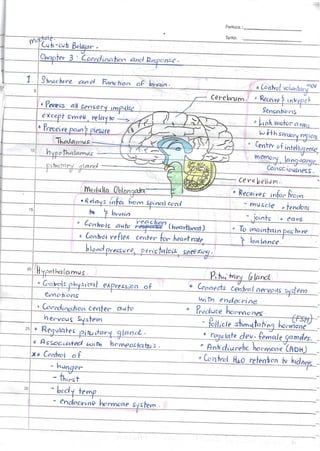 Perkara :
Tarikh :
Cuti-cuti Belajar.
Chapter 3 : Coordination and Response.
1. Structure and Function of brain.
Cerebrum
• Control voluntary
• Receive & intepret
sensations
• Link motor area
with sensory region
• Center of intelligence,
memory, language,
consciousness.
• Process all sensory impulse
except smell, relay to
• Perceive pain & pleasure
Thalamus
hypothalamus
pituitary gland
Cerebellum.
• Receives infor from
- muscle • tendons
- joints • ears
• To maintain posture
& balance
Medulla Oblongata
• Relays infor from spinal cord
to brain
• Controls auto reaction (heartbeat)
• Control reflex center for heart rate,
blood pressure, peristalsis, sneezing.
Hypothalamus
• Controls physical expression of
emotions
• Coordination center auto
nervous system
• Regulates pituitary gland.
• Associated with homeostasis.
• Control of
- hunger
- thirst
- body temp
- endocrine hormone system.
Pituitary Gland
• Connects central nervous system
with endocrine
• Produce hormones
- follicle stimulating hormone (FSH)
• regulate dev. female gamdes.
• Antidiuretic hormone (ADH)
• Control H₂O retention by kidneys